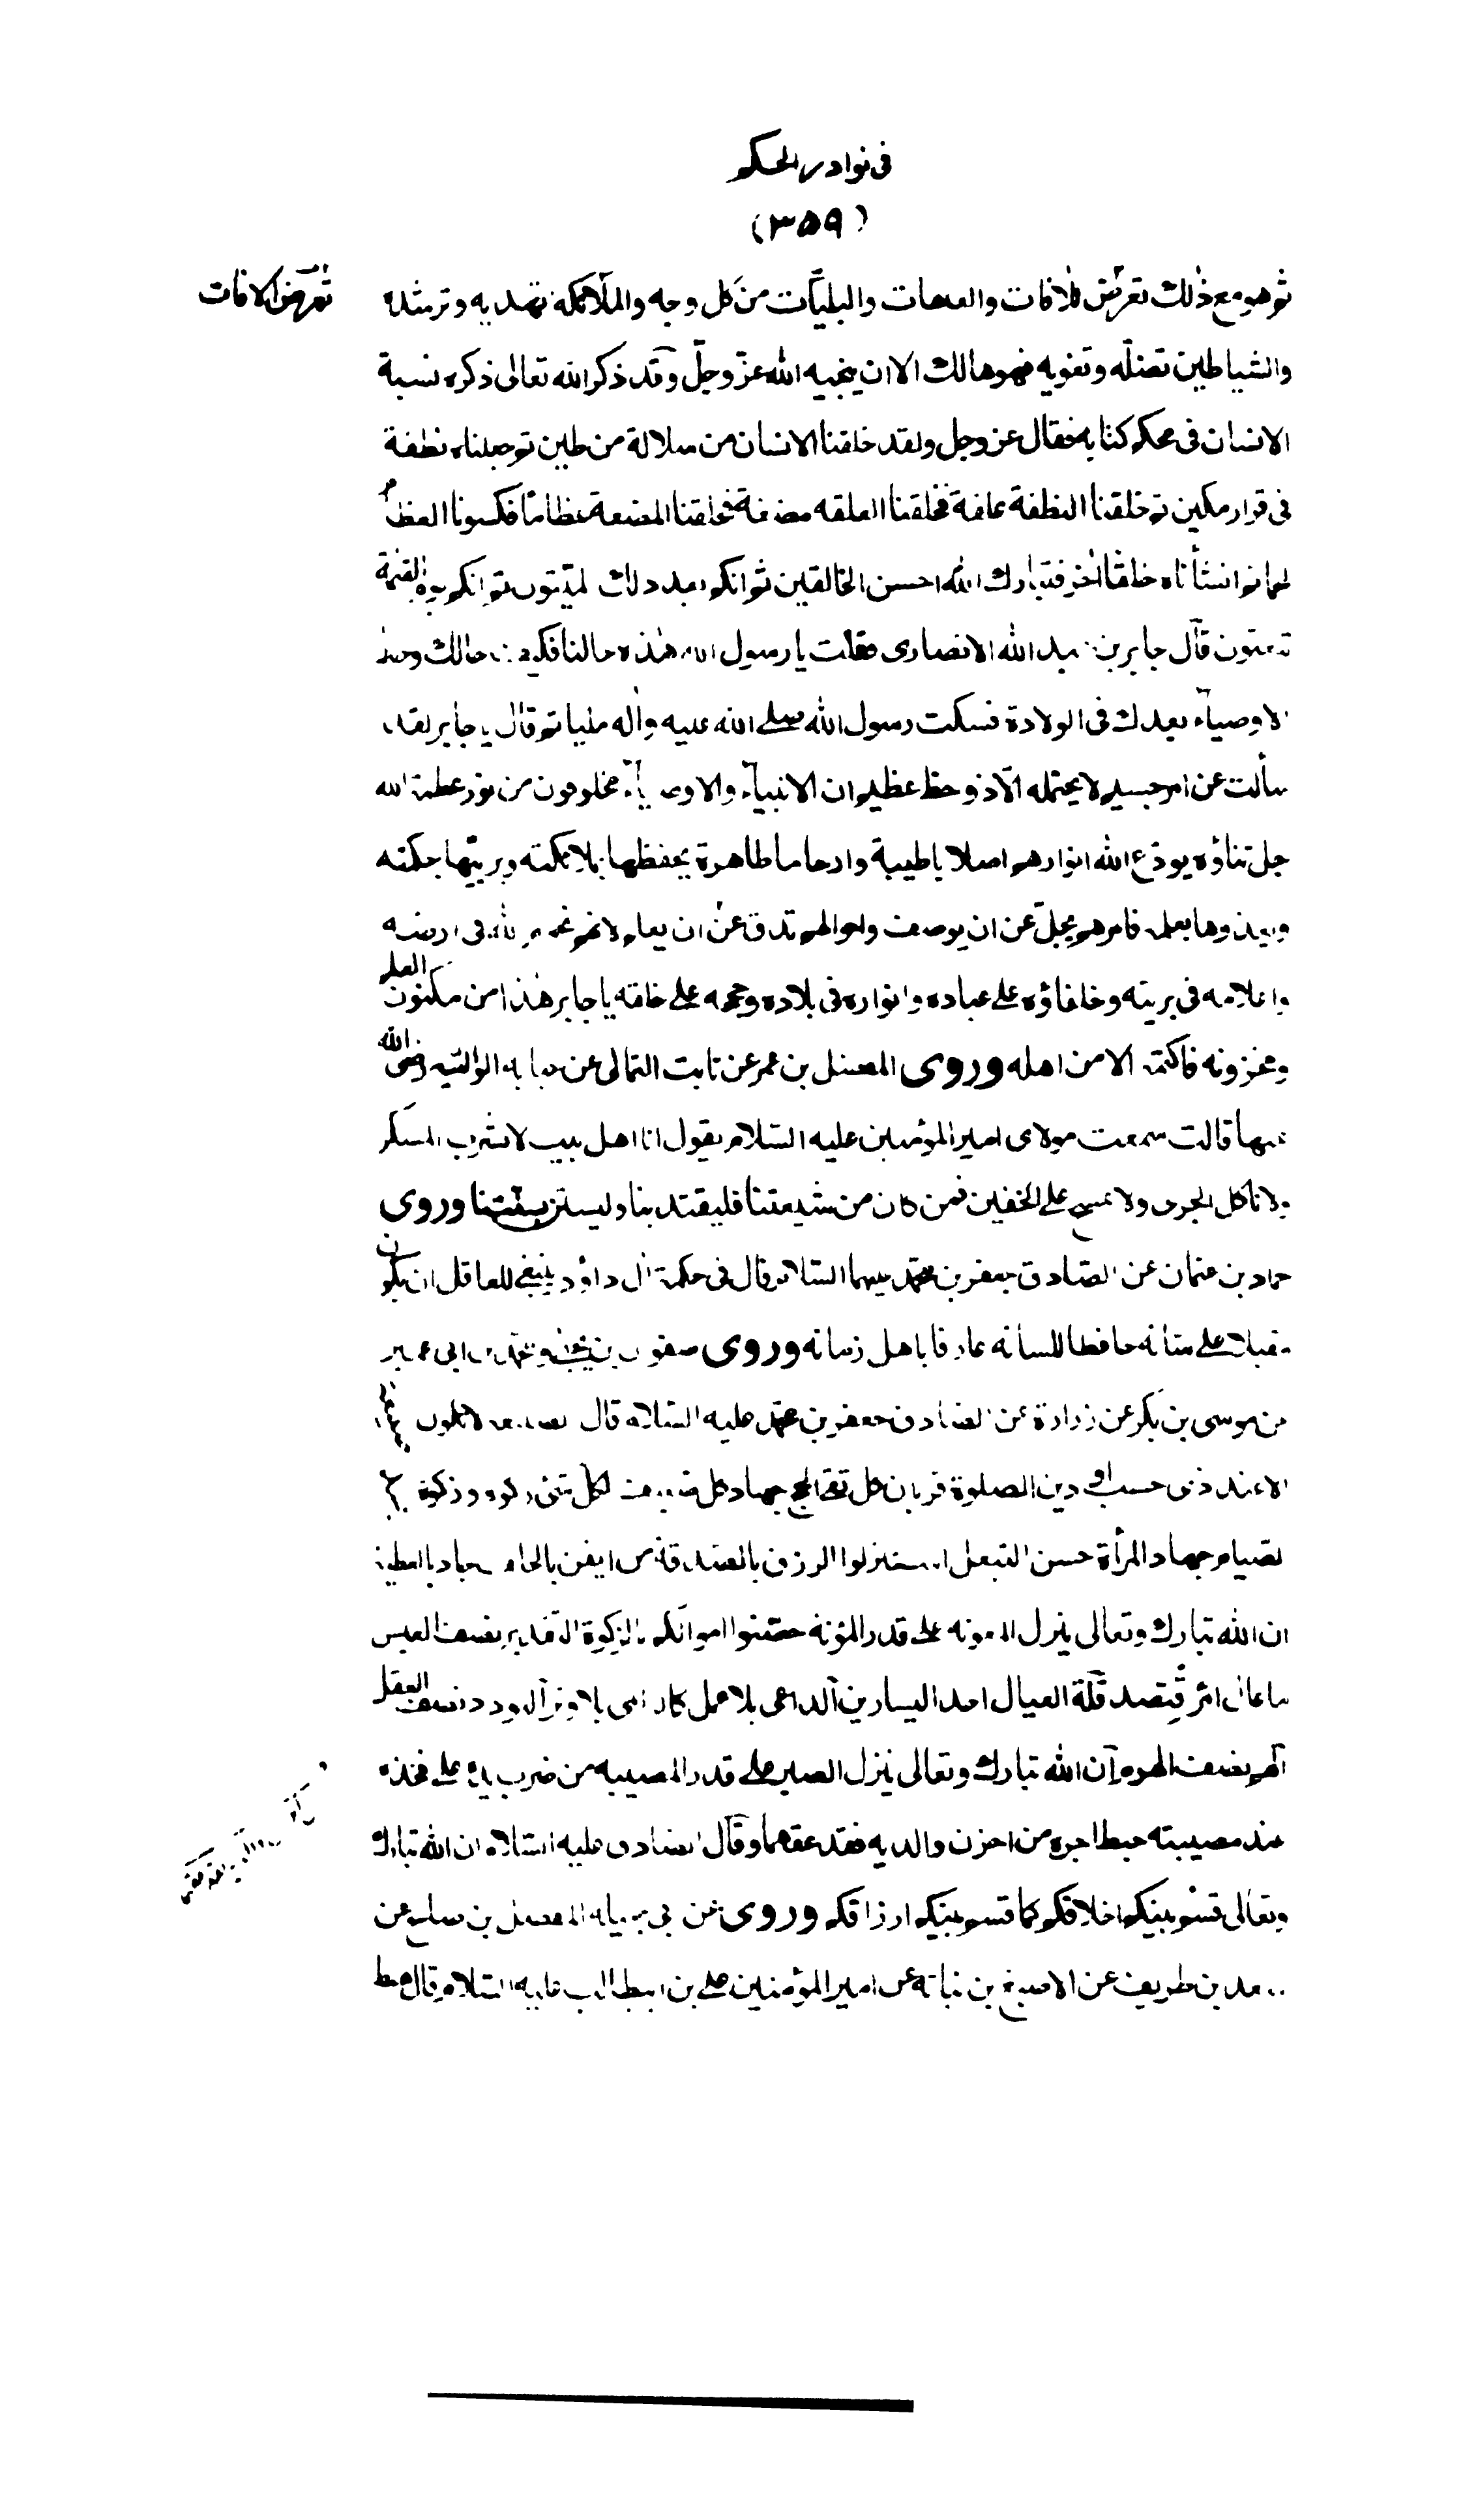 فى نوادر الحكم
(٣٥٩)
ثم هو مع ذلك تعرض للآفات والعاهات والبليّات من كل وجه والملائكة تهديه وترشده
تعرض الافات
والشياطين تضلّه وتغويه فهو هالك الا ان ينجيه الله عزّ وجلّ وقد ذكر الله تعالى ذكره نسبة
الانسان فى محكم كتابه فقال عز وجل ولقد خلقنا الانسان من سلالة من طين ثم جعلناه نطفة
فى قرار مكين ثم خلقنا النطفة علقة فخلقنا العلقه مضغة فخلقنا المضغة عظامًا فكسونا العظام
لحما ثم انشأناه خلقًا اخر فتبارك الله احسن الخالقين ثم انكم بعد ذلك لميّتون ثم انكم يوم القيمة
تبعثون قال جابر بن عبد الله الانصارى فقلت يا رسول الله هذه حالنا فكيف حالك وحال
الاوصياء بعدك فى الولادة فسكت رسول الله صلى الله عليه واله مليا ثم قال يا جابر لقد
سألت عن امر جسيم لا يحتمله الّا ذو حظ عظيم ان الانبياء والاوصياء مخلوقون من نور عظمة الله
جل ثناؤه يودع الله انوارهم اصلابا طيبة وارحاما طاهرة يحفظها بملائكته ويربيّها بحكمته
ويغذوها بعلمه فامرهم يجلّ عن ان يوصف واحوالهم تدق عن ان يعلم لانهم نجوم الله فى ارضه
واعلامه فى بريته وخلفاؤه على عباده وانواره فى بلاده وحججه على خلقه يا جابر هذا من مكنون العلم
ومخزونه فاكتمه الا من اهله وروى المفضل بن عمر عن ثابت الثمالى عن حبابه الوالبيه رضى الله
عنها قالت سمعت مولاى امير المؤمنين عليه السّلام يقول انا اهل بيت لا نشرب المسكر
ولا ناكل الجرى ولا نمسح على الخفين فمن كان من شيعتنا فليقتد بنا وليستن بسنّتنا وروى
حماد بن عثمان عن الصّادق جعفر بن محمّد عليهما السّلام قال فى حكمة ال داؤد ينبغى للعاقل ان يكون
مقبلا على شانه حافظا للسانه عارفا باهل زمانه وروى صفوان بن يحيى ومحمّد بن ابى عمير
عن موسى بن بكر عن زرارة عن الصّادق جعفر بن محمّد عليه السّلام قال الصنيعه لا تكون
الا عند ذى حسب او دين الصلوة قربان كل تقى الحج جهاد كل ضعيف لكل شئ زكوه وزكوة
الصيام جهاد المرأة حسن التبعل استنزلوا الرزق بالصّدقة من ايقن بالخلف جاد بالعطية
ان الله تبارك وتعالى ينزل المعونه على قدر المؤنة حصّنوا اموالكم بالزكوة التقدير نصف العيش
ما عال امرؤ اقتصد قلّة العيال احد اليسارين الداعى بلا عمل كالرامى بلا وتر التودد نصف العقل
الهم نصف الهرم ان الله تبارك وتعالى ينزل الصبر على قدر المصيبه من ضرب يده على فخذه
عند مصيبته حبط اجره من احزن والديه فقد عقهما وقال الصّادق عليه السّلام ان الله تبارك
وتعالى قسم بينكم اخلاقكم كما قسم بينكم ارزاقكم وروى عن ابى جميله المفضل بن صالح عن
سعد بن طريف عن الاصبغ بن نباتة عن امير المؤمنين على بن ابيطالب عليه السّلام قال هبط